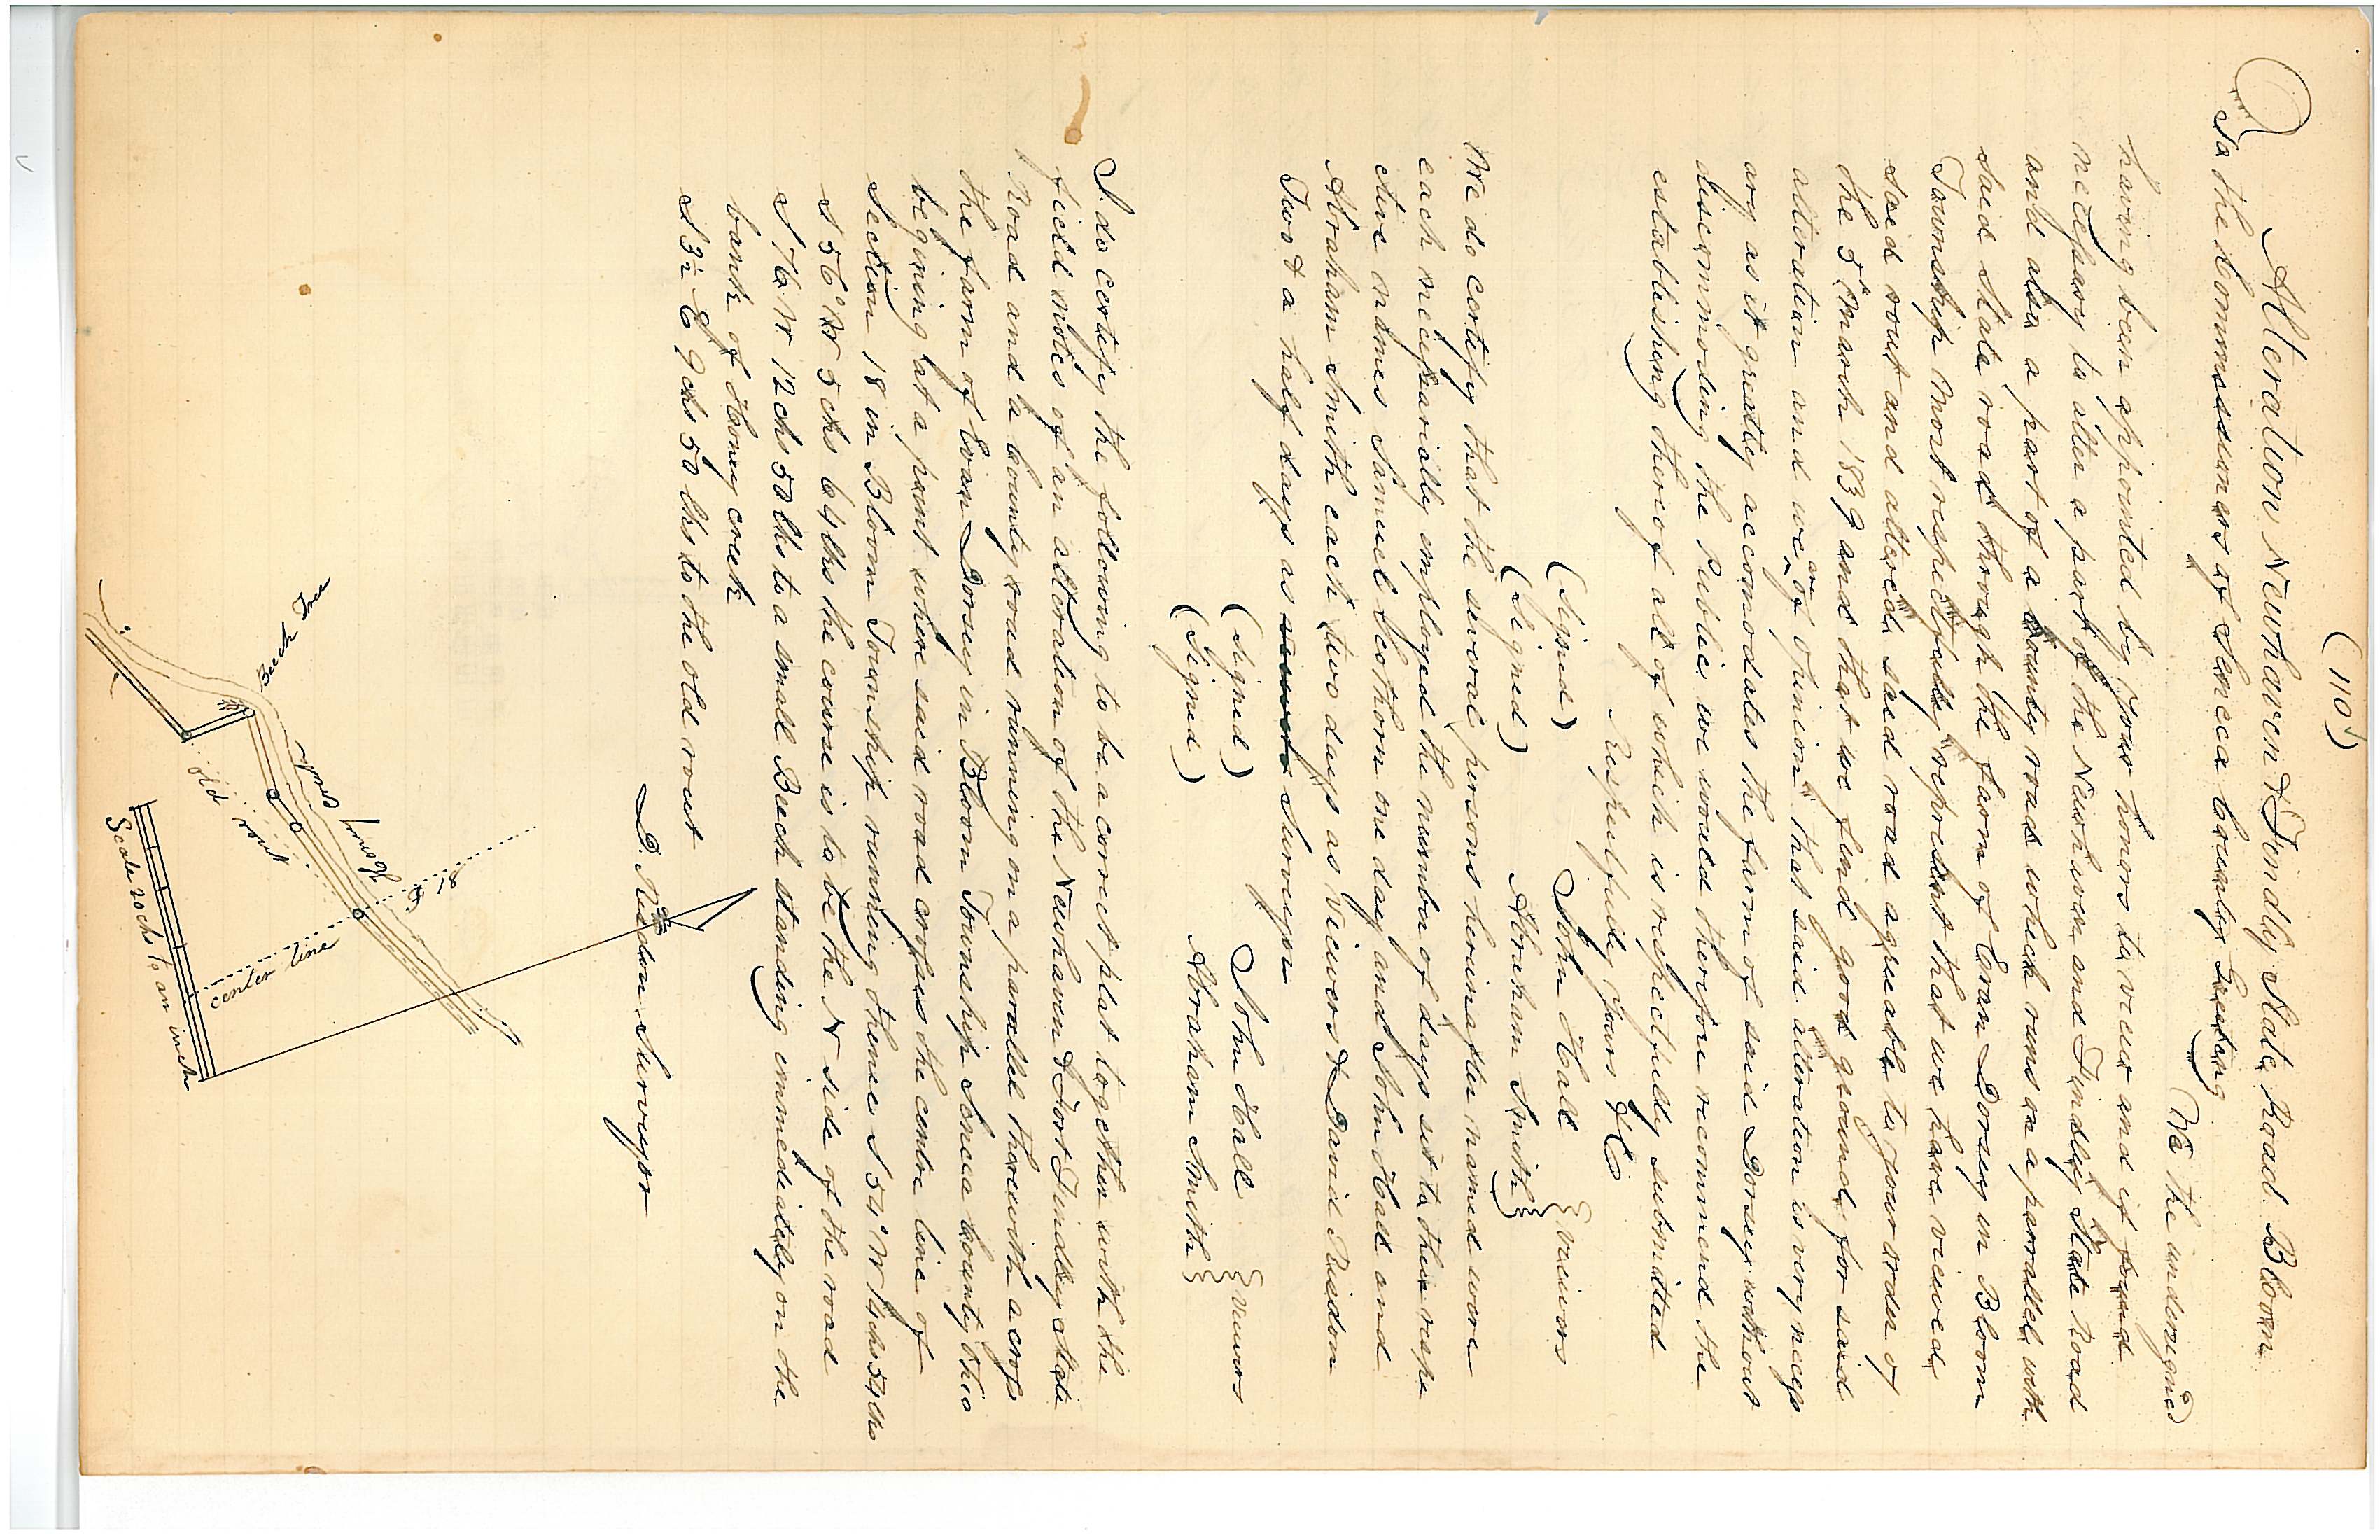 (110)
Alteration Newhaven & Findly State Road. Bloom
To the Commissioners of Seneca County Greeting
We the undersigned
having been appointed by your honors to view and if found
necessary to alter a part of the Newhaven and Findly State Road
and also a part of a County road which runs on a parrallel with
said State road through the farm of Evan Dorsey in Bloom
Township most respectfully represent that we have viewed
said rout and altered said road agreeable to your order of
the 5th March 1839 and that we find good ground for said
alteration and we are of opinion that said alteration is very necess
ary as it greatly accomodates the farm of said Dorsey without
discommoding the Public we would therefore recommend the
establishing thereof all of which is respectfully submitted
Respectfully yours &C
(Signed) John Hall } viewers
(Signed) Abraham Smith }
We do certify that the several persons hereinafter named were
each necessarially employed the number of days set to their respe
ctive names Samuel Scothorn one day and John Hall and
Abraham Smith each two days as Viewers & David Risdon
Two & a half days as Surveyor
(Signed) John Hall } viewers
(Signed) Abraham Smith }
I do certify the following to be a correct plat together with the
field notes of an alteration of the Newhaven & Fort Findley State
Road and a County road running on a parallel therewith across
the farm of Evan Dorsey in Bloom Township Seneca County Ohio
begining at a point where said road crosses the centre line of
Section 18 in Bloom Township running thence S 54° W 14 chs 54 lks
S 56° W 5 chs 64 lks the course is to be the N side of the road
S 76 W 12 chs 50 lks to a small Beech standing immediately on the
bank of Honey creek
S 3½ E 9 chs 50 lks to the old rout
D. Risdon Surveyor
Beech Tree
Honey creek
18
old rout
center line
Scale 20 chs to an inch